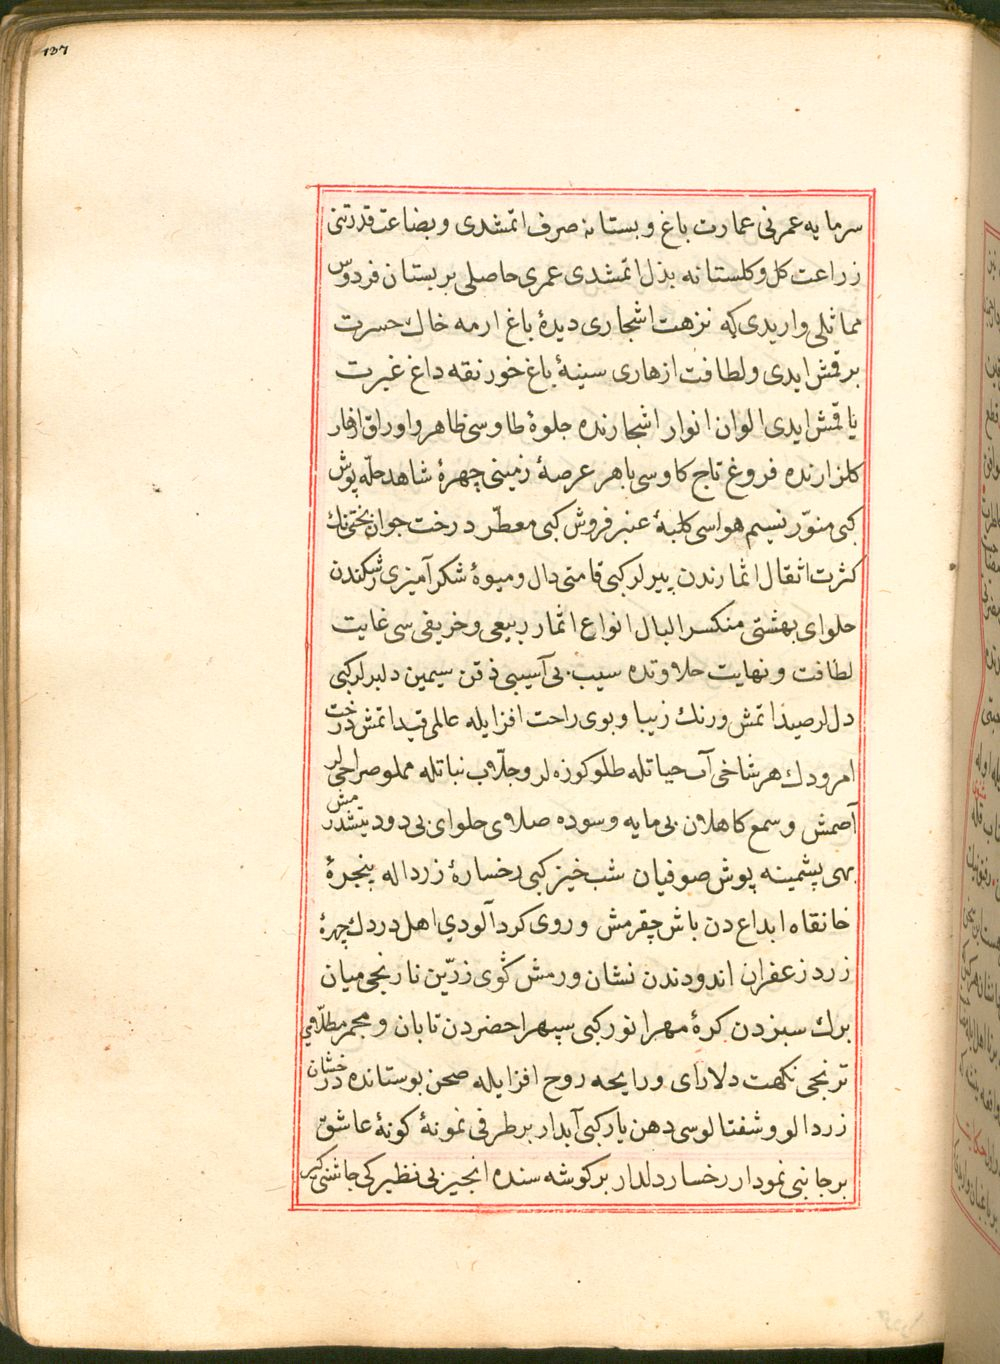 ١٣٦
سرمایه عمرنی عمارت باغ و بستانه صرف اتمشدی و بضاعت قدرتنی
زراعت کل و کلستانه بذل اتمشدی عمری حاصلی بر بستان فردوس
مماثلی واریدی که نزهت اشجاری دیدهٔ باغ ارمه خاك حسرت
برقمش ایدی و لطافت ازهاری سینهٔ باغ خورنقه داغ غیرت
یاقمش ایدی الوان انوار اشجارنده جلوهٔ طاوسی ظاهر و اوراق ازهار
کلزارنده فروغ تاج کاوسی باهر عرصهٔ زمینی چهرهٔ شاهد حلّه پوش
کبی منوّر نسیم هواسی کلبهٔ عنبر فروش کبی معطّر درخت جوان بختنك
کثرت اثقال اثمارندن پیرلر کبی قامتی دال و میوهٔ شکر آمیزی رشکندن
حلوای بهشتی منکسر البال انواع اثمار ربیعی و خریفی سی غایت
لطافت و نهایت حلاوتده سیب بی آسیبی ذقن سیمین دلبرلر کبی
دللر صید اتمش و رنك زیبا و بوی راحت افزایله عالمی قید اتمش درخت
امرودك هر شاخی آب حیاتله طلو کوزه لر و جلّاب نباتله مملو صراحیلر
آصمش و سمع کاهلان بی مایه و سوده صلای حلوای بی دود یتشدرمش
بهی پشمینه پوش صوفیان شب خیز کبی رخسارهٔ زرد اله پنجرهٔ
خانقاه ابداعدن باش چقرمش و روی کرد آلودی اهل دردك چهرهٔ
زرد زعفران اندودندن نشان ورمش کوی زرّین نارنجی میان
برك سبزدن کرهٔ مهر انور کبی سپهر اخضردن تابان و مجمر مطلّای
ترنجی نکهت دلارای و رایحه روح افزایله صحن بوستانده درخشان
زردالو و شفتالوسی دهن یار کبی آبدار بر طرفی نمونهٔ کونهٔ عاشق
بر جانبی نمودار رخسار دلدار بر کوشه سنده انجیر بی نظیر کی چاشنی کیر